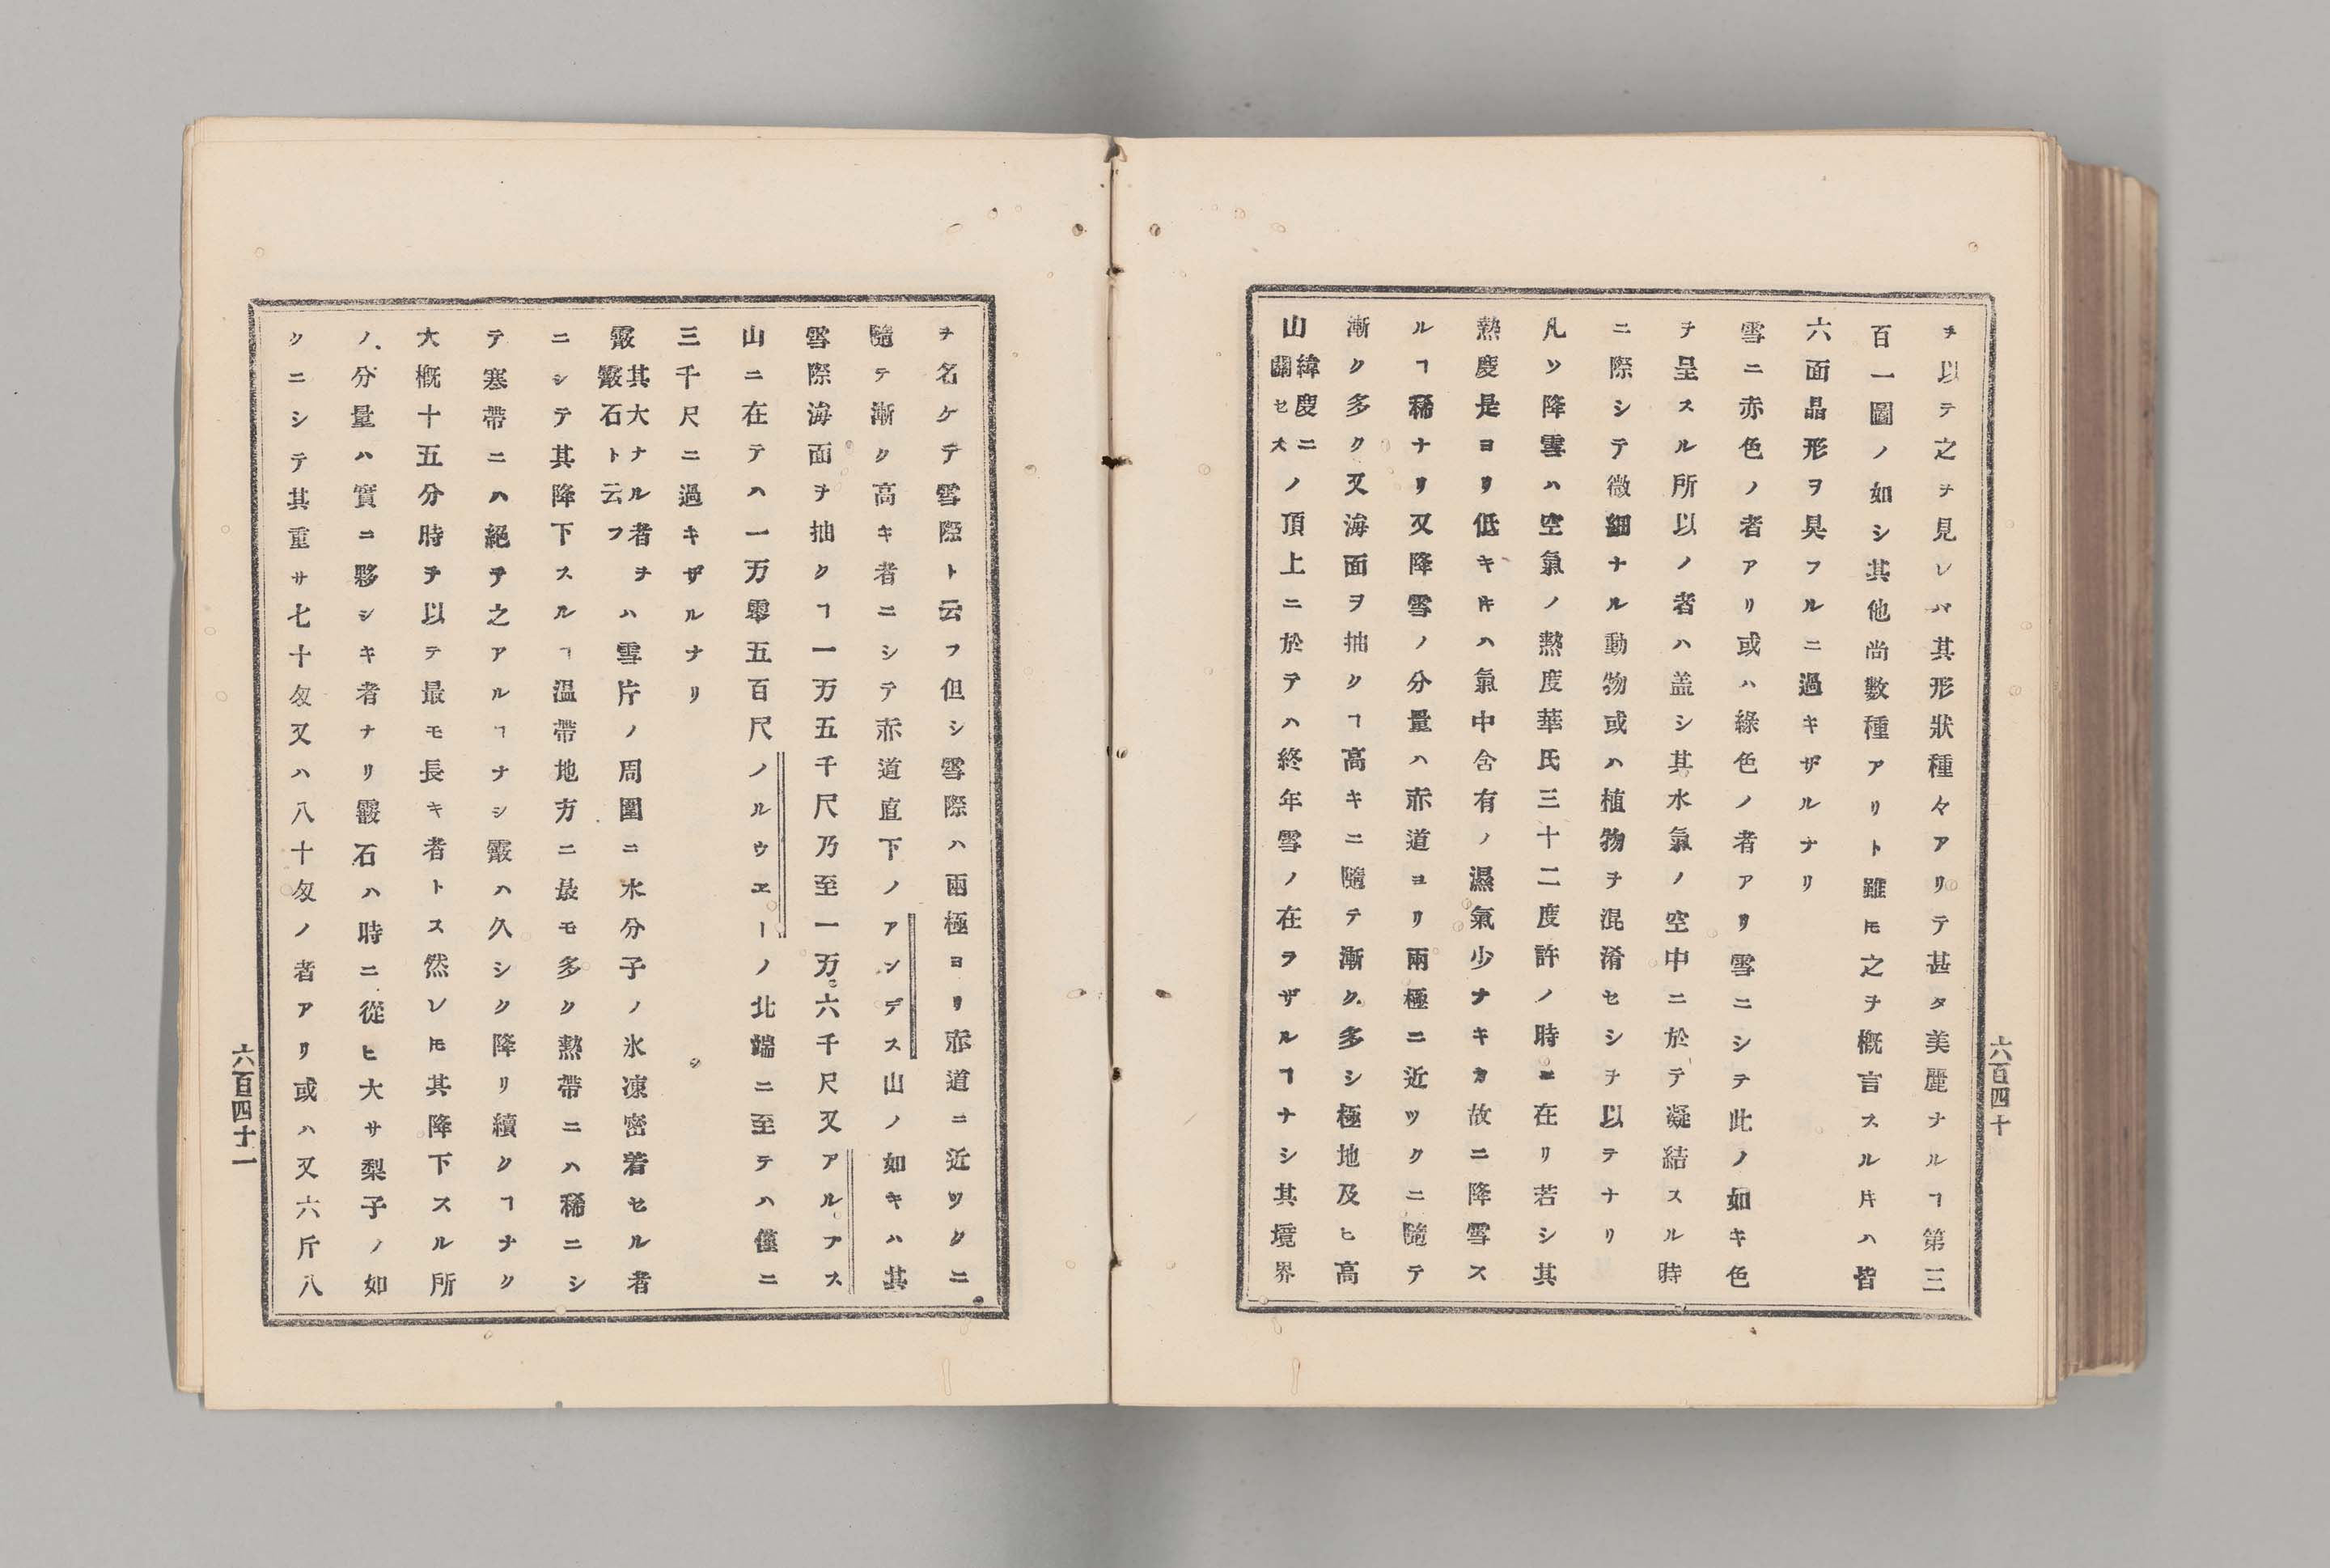 ヲ以テ之ヲ見レハ其形狀種々アリテ甚タ美麗ナルヿ第三
百一圖ノ如シ其他尚數種アリト雖𪜈之ヲ概言スル𪜈ハ皆
六面晶形ヲ具フルニ過キザルナリ
雪ニ赤色ノ者アリ或ハ綠色ノ者アリ雪ニシテ此ノ如キ色
ヲ呈スル所以ノ者ハ盖シ其水氣ノ空中ニ於テ凝結スル時
ニ際シテ微細ナル動物或ハ植物ヲ混淆セシヲ以テナリ
凡ソ降雪ハ空氣ノ熱度華氏三十二度許ノ時ニ在リ若シ其
熱度是ヨリ低キ𪜈ハ氣中含有ノ濕氣少ナキカ故ニ降雪ス
ルヿ稀ナリ又降雪ノ分量ハ赤道ヨリ兩極ニ近ツクニ隨テ
漸ク多ク又海面ヲ抽クヿ高キニ隨テ漸ク多シ極地及ヒ高
山緯度ニ關セスノ頂上ニ於テハ終年雪ノ在ラザルヿナシ其境界
六百四十
ヲ名ケテ雪際ト云フ但シ雪際ハ兩極ヨリ赤道ニ近ツクニ
隨テ漸ク高キ者ニシテ赤道直下ノアンデス山ノ如キハ其
雪際海面ヲ抽クヿ一万五千尺乃至一万六千尺又アルプス
山ニ在テハ一万零五百尺ノルウヱーノ北端ニ至テハ僅ニ
三千尺ニ過キザルナリ
霰其大ナル者ヲ霰石ト云フハ雪片ノ周圍ニ水分子ノ氷凍密着セル者
ニシテ其降下スルヿ溫帶地方ニ最モ多ク熱帶ニハ稀ニシ
テ寒帶ニハ絕テ之アルヿナシ霰ハ久シク降リ續クヿナク
大概十五分時ヲ以テ最モ長キ者トス然レ𪜈其降下スル所
ノ分量ハ實ニ夥シキ者ナリ霰石ハ時ニ從ヒ大サ梨子ノ如
クニシテ其重サ七十匁又ハ八十匁ノ者アリ或ハ又六斤八
六百四十一